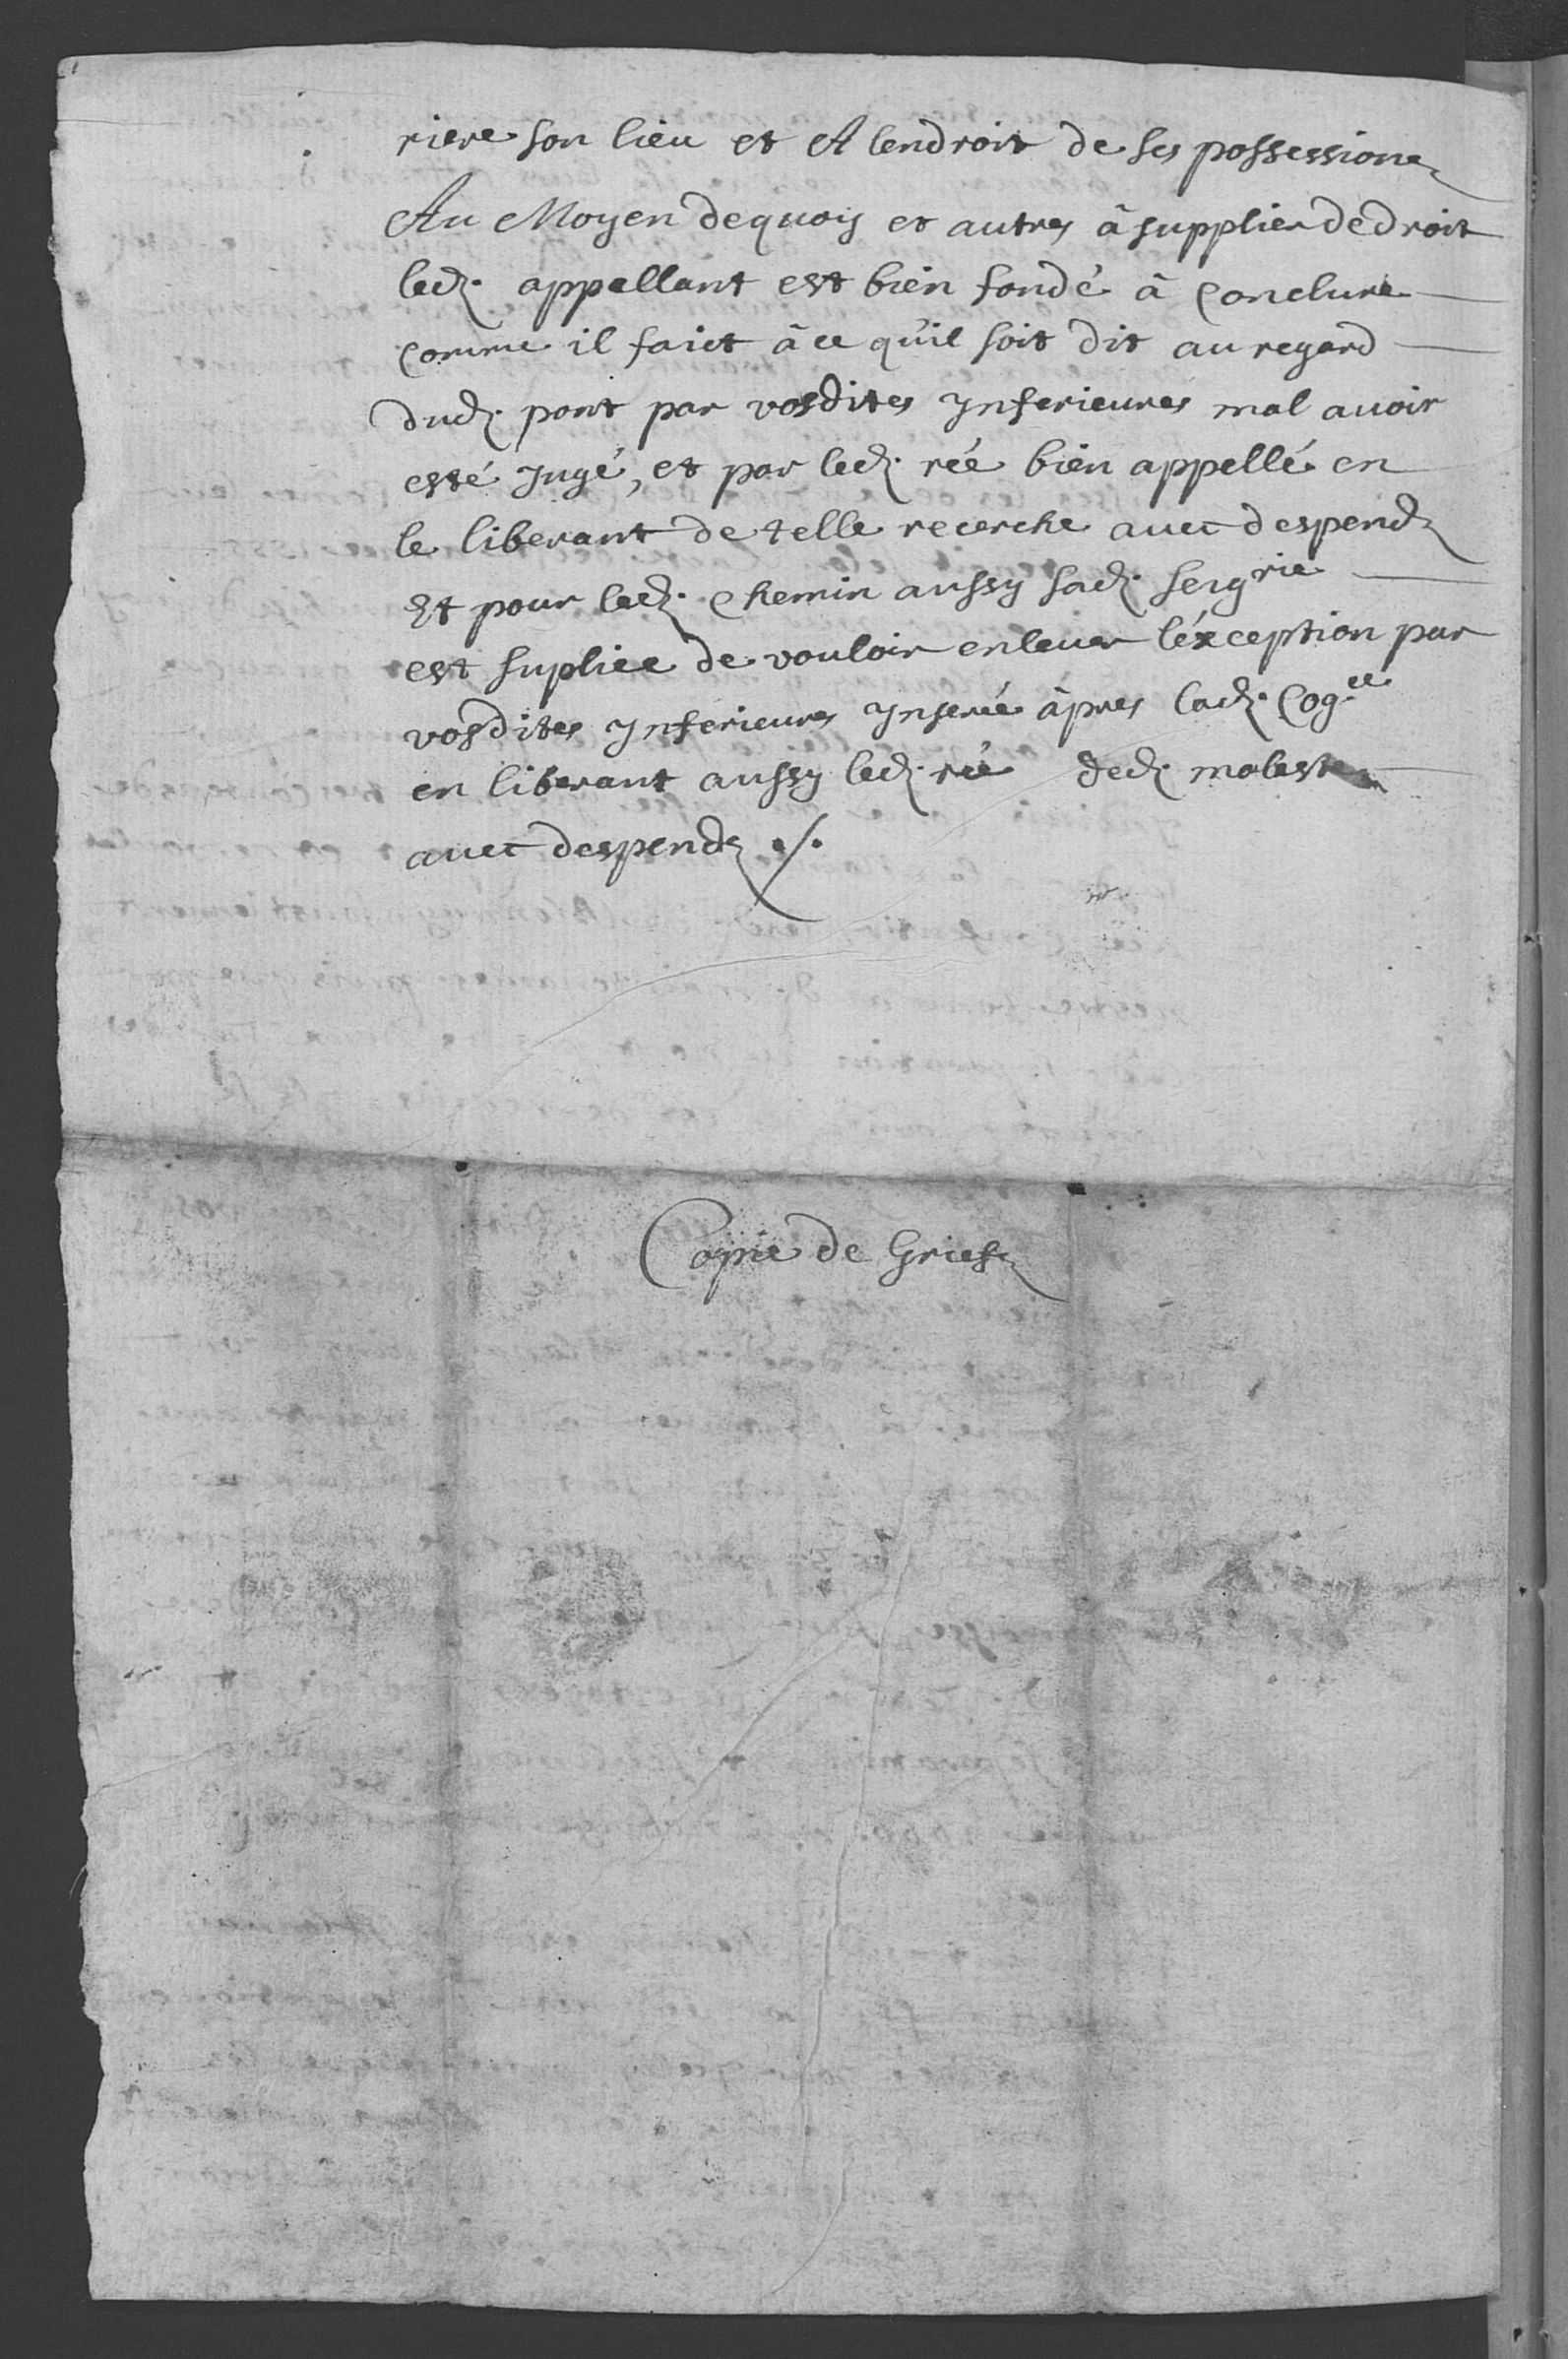 riere son lieu et A lendroit de ses possessions
Au Moyen dequoy et autres à supplier de droit
led. appellant est bien fondé à Conclure
Comme il faict à ce qu'il soit dit au regard
dud. pont par vosdites Inferieures mal avoir
esté Jugé, et par led. réé bien appellé en
le liberant de telle recerche avec despends
Et pour led. Chemin aussy sad. Seigrie
est supliee de vouloir enlever léxception par
vosdites Inferieures Inserée àpres lad. Cog.ce
en liberant aussy led. réé ded. moleste
avec despends ./.
Copie de Griefs